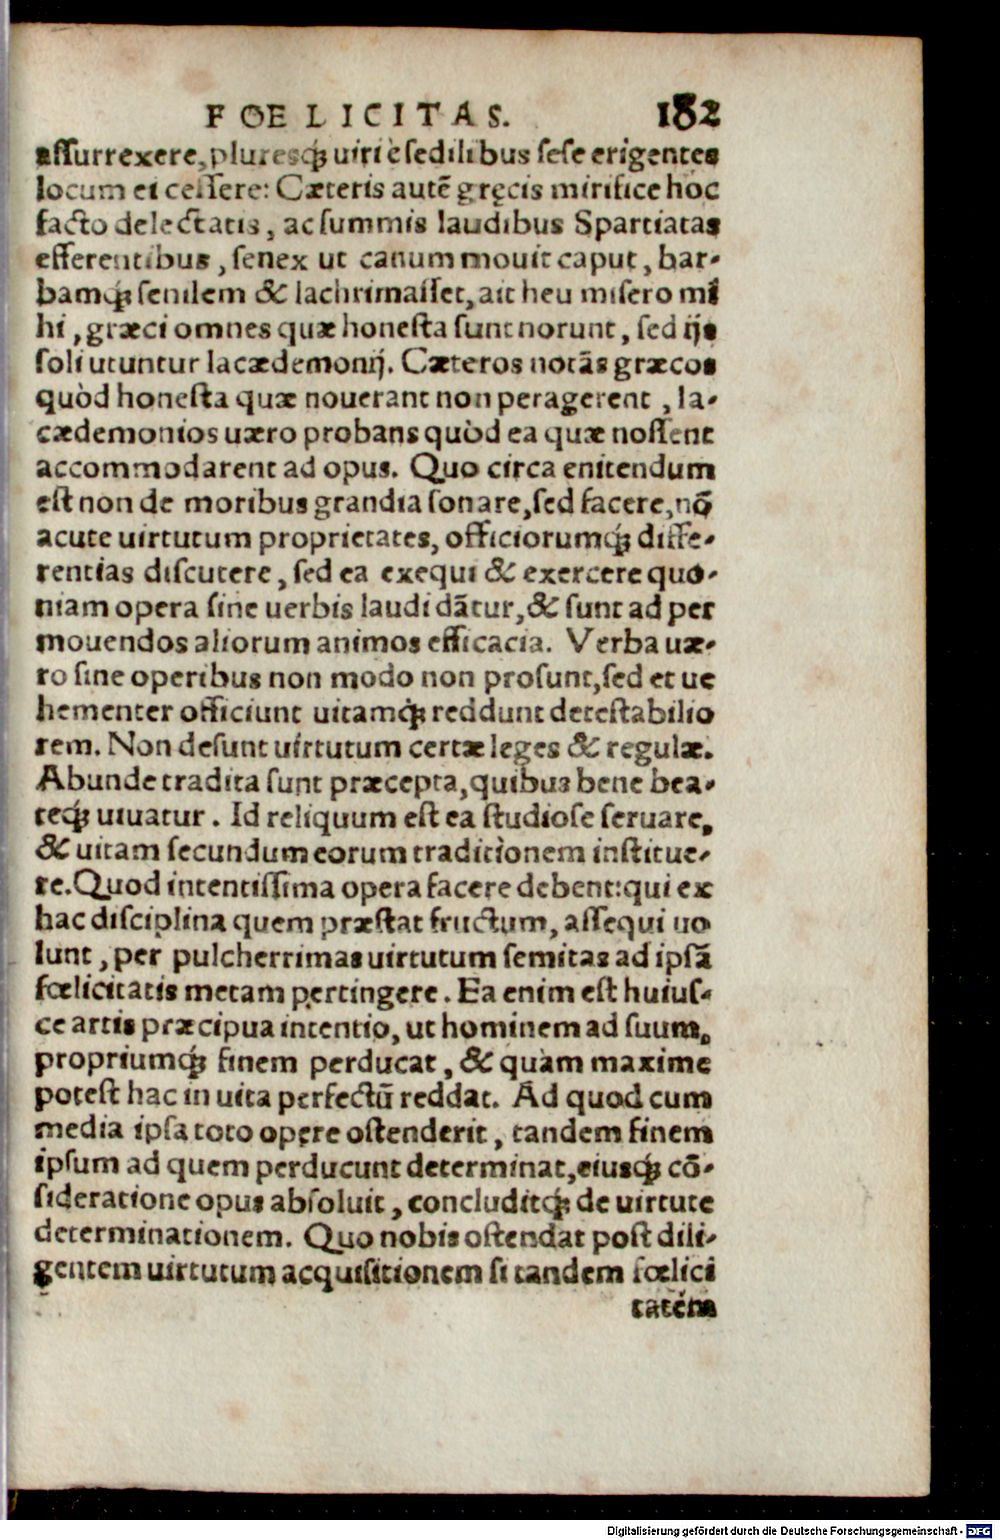 FOELICITAS. 182
assurrexere, pluresq́; uiri è sedilibus sese erigentes
locum ei cessere: Cæteris autē gręcis mirifice hoc
facto delectatis, ac summis laudibus Spartiatas
efferentibus, senex ut canum mouit caput, bar-
bamq́; senilem & lachrimasset, ait heu misero mi
hi, græci omnes quæ honesta sunt norunt, sed ijs
soli utuntur lacædemonij. Cæteros notãs græcos
quòd honesta quæ nouerant non peragerent, la-
cædemonios uæro probans quòd ea quæ nossent
accommodarent ad opus. Quo circa enitendum
est non de moribus grandia sonare, sed facere, nō
acute uirtutum proprietates, officiorumq́; diffe-
rentias discutere, sed ea exequi & exercere quo-
niam opera sine uerbis laudi dãtur, & sunt ad per
mouendos aliorum animos efficacia. Verba uæ-
ro sine operibus non modo non prosunt, sed et ue
hementer officiunt uitamq́; reddunt detestabilio
rem. Non desunt uirtutum certæ leges & regulæ.
Abunde tradita sunt præcepta, quibus bene bea-
teq́; uiuatur. Id reliquum est ea studiose seruare,
& uitam secundum eorum traditionem institue-
re. Quod intentissima opera facere debent: qui ex
hac disciplina quem præstat fructum, assequi uo
lunt, per pulcherrimas uirtutum semitas ad ipsã
fœlicitatis metam pertingere. Ea enim est huius-
ce artis præcipua intentio, ut hominem ad suum,
propriumq́; finem perducat, & quàm maxime
potest hac in uita perfectū reddat. Ad quod cum
media ipsa toto opere ostenderit, tandem finem
ipsum ad quem perducunt determinat, eiusq́; cō-
sideratione opus absoluit, concluditq́; de uirtute
determinationem. Quo nobis ostendat post dili-
gentem uirtutum acquisitionem si tandem fœlici
tatem
Digitalisierung gefördert durch die Deutsche Forschungsgemeinschaft - DFG